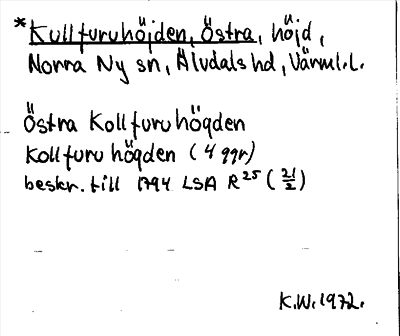 *Kullfuruhöjden, Östra, höjd,
Norra Ny sn, Älvdals hd, Värml.l.
Östra Kollfuruhögden
Kollfuruhögden (4 ggr)
beskr. till 1794 LSA R25 (21/2)
K.W. 1972.